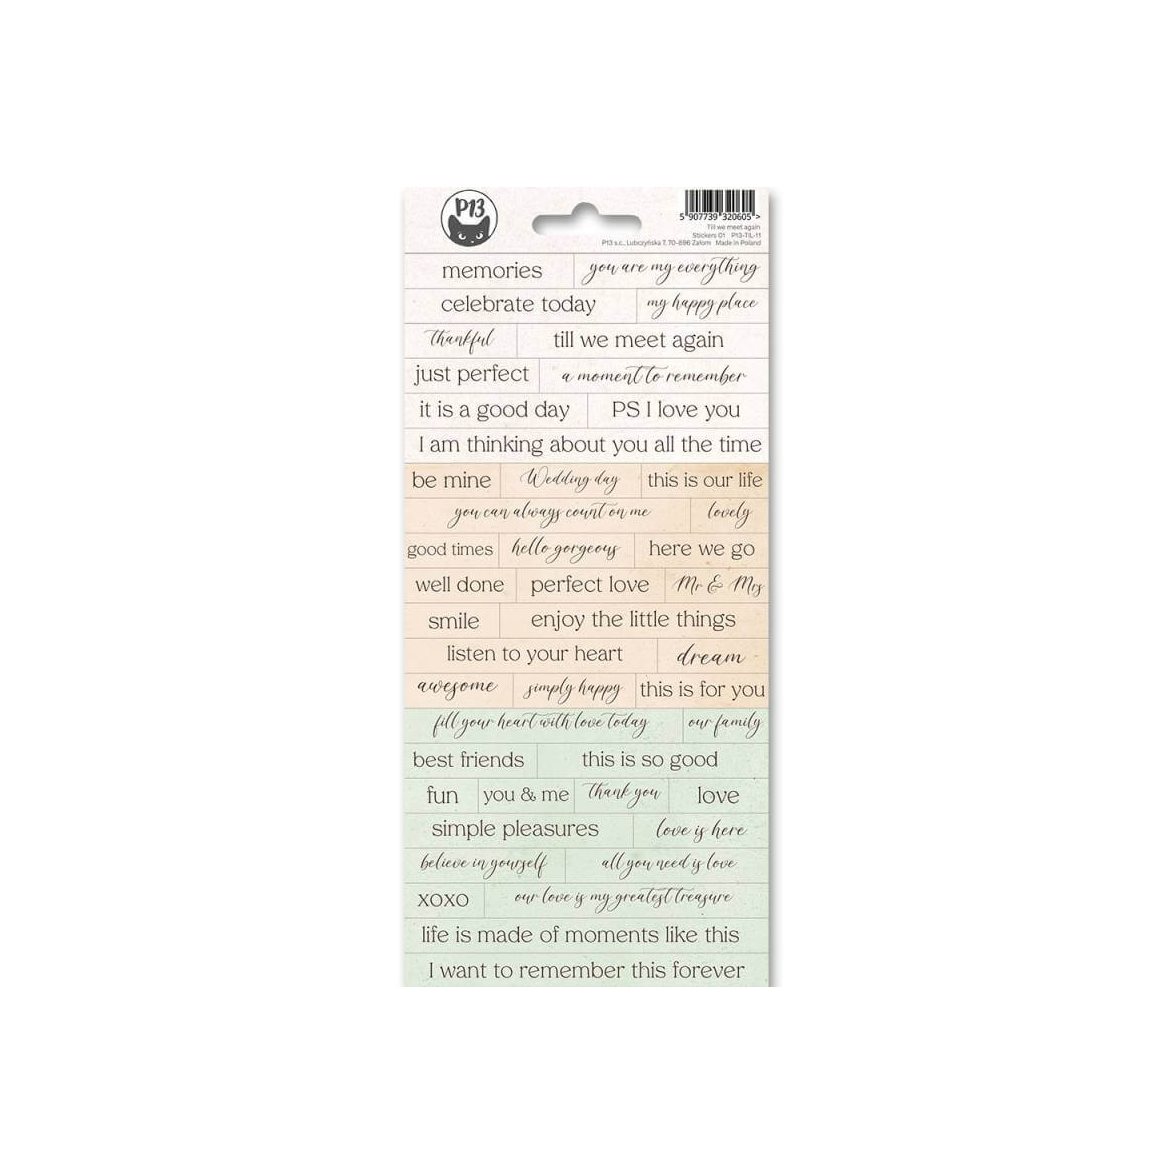 P13
5 907739 320605 >
Till we meet again
Stickers 01 P13-TIL-11
P13 s.c., Lubczyńska 7, 70-896 Załom Made in Poland
memories you are my everything
celebrate today my happy place
thankful till we meet again
just perfect a moment to remember
it is a good day PS I love you
I am thinking about you all the time
be mine Wedding day this is our life
you can always count on me lovely
good times hello gorgeous here we go
well done perfect love Mr & Mrs
smile enjoy the little things
listen to your heart dream
awesome simply happy this is for you
fill your heart with love today our family
best friends this is so good
fun you & me thank you love
simple pleasures love is here
believe in yourself all you need is love
xoxo our love is my greatest treasure
life is made of moments like this
I want to remember this forever